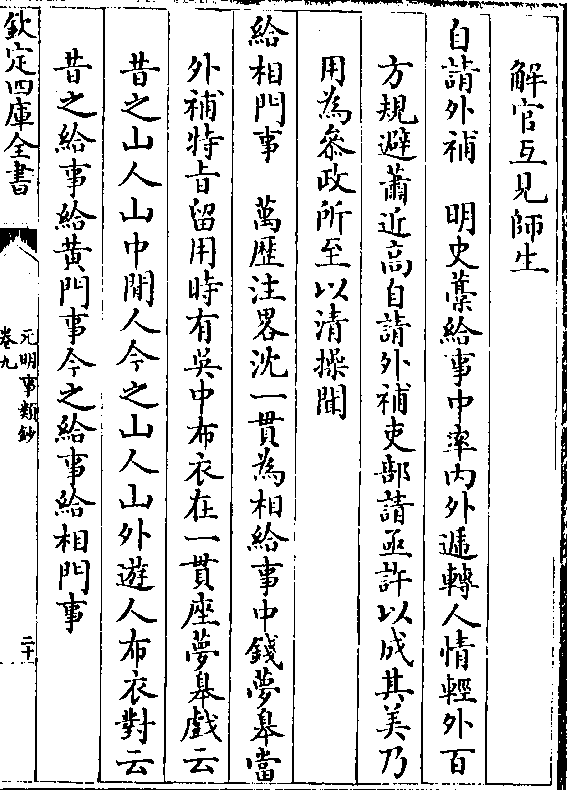 解官互見師生
自請外補　明史藁給事中率内外遞轉人情輕外百
方規避蕭近高自請外補吏部請亟許以成其美乃
用為參政所至以清操聞
給相門事　萬歷注畧沈一貫為相給事中錢夢皋當
外補特旨留用時有吳中布衣在一貫座夢皋戲云
昔之山人山中閒人今之山人山外遊人布衣對云
昔之給事給黄門事今之給事給相門事
欽定四庫全書
元明事類鈔
卷九
二十